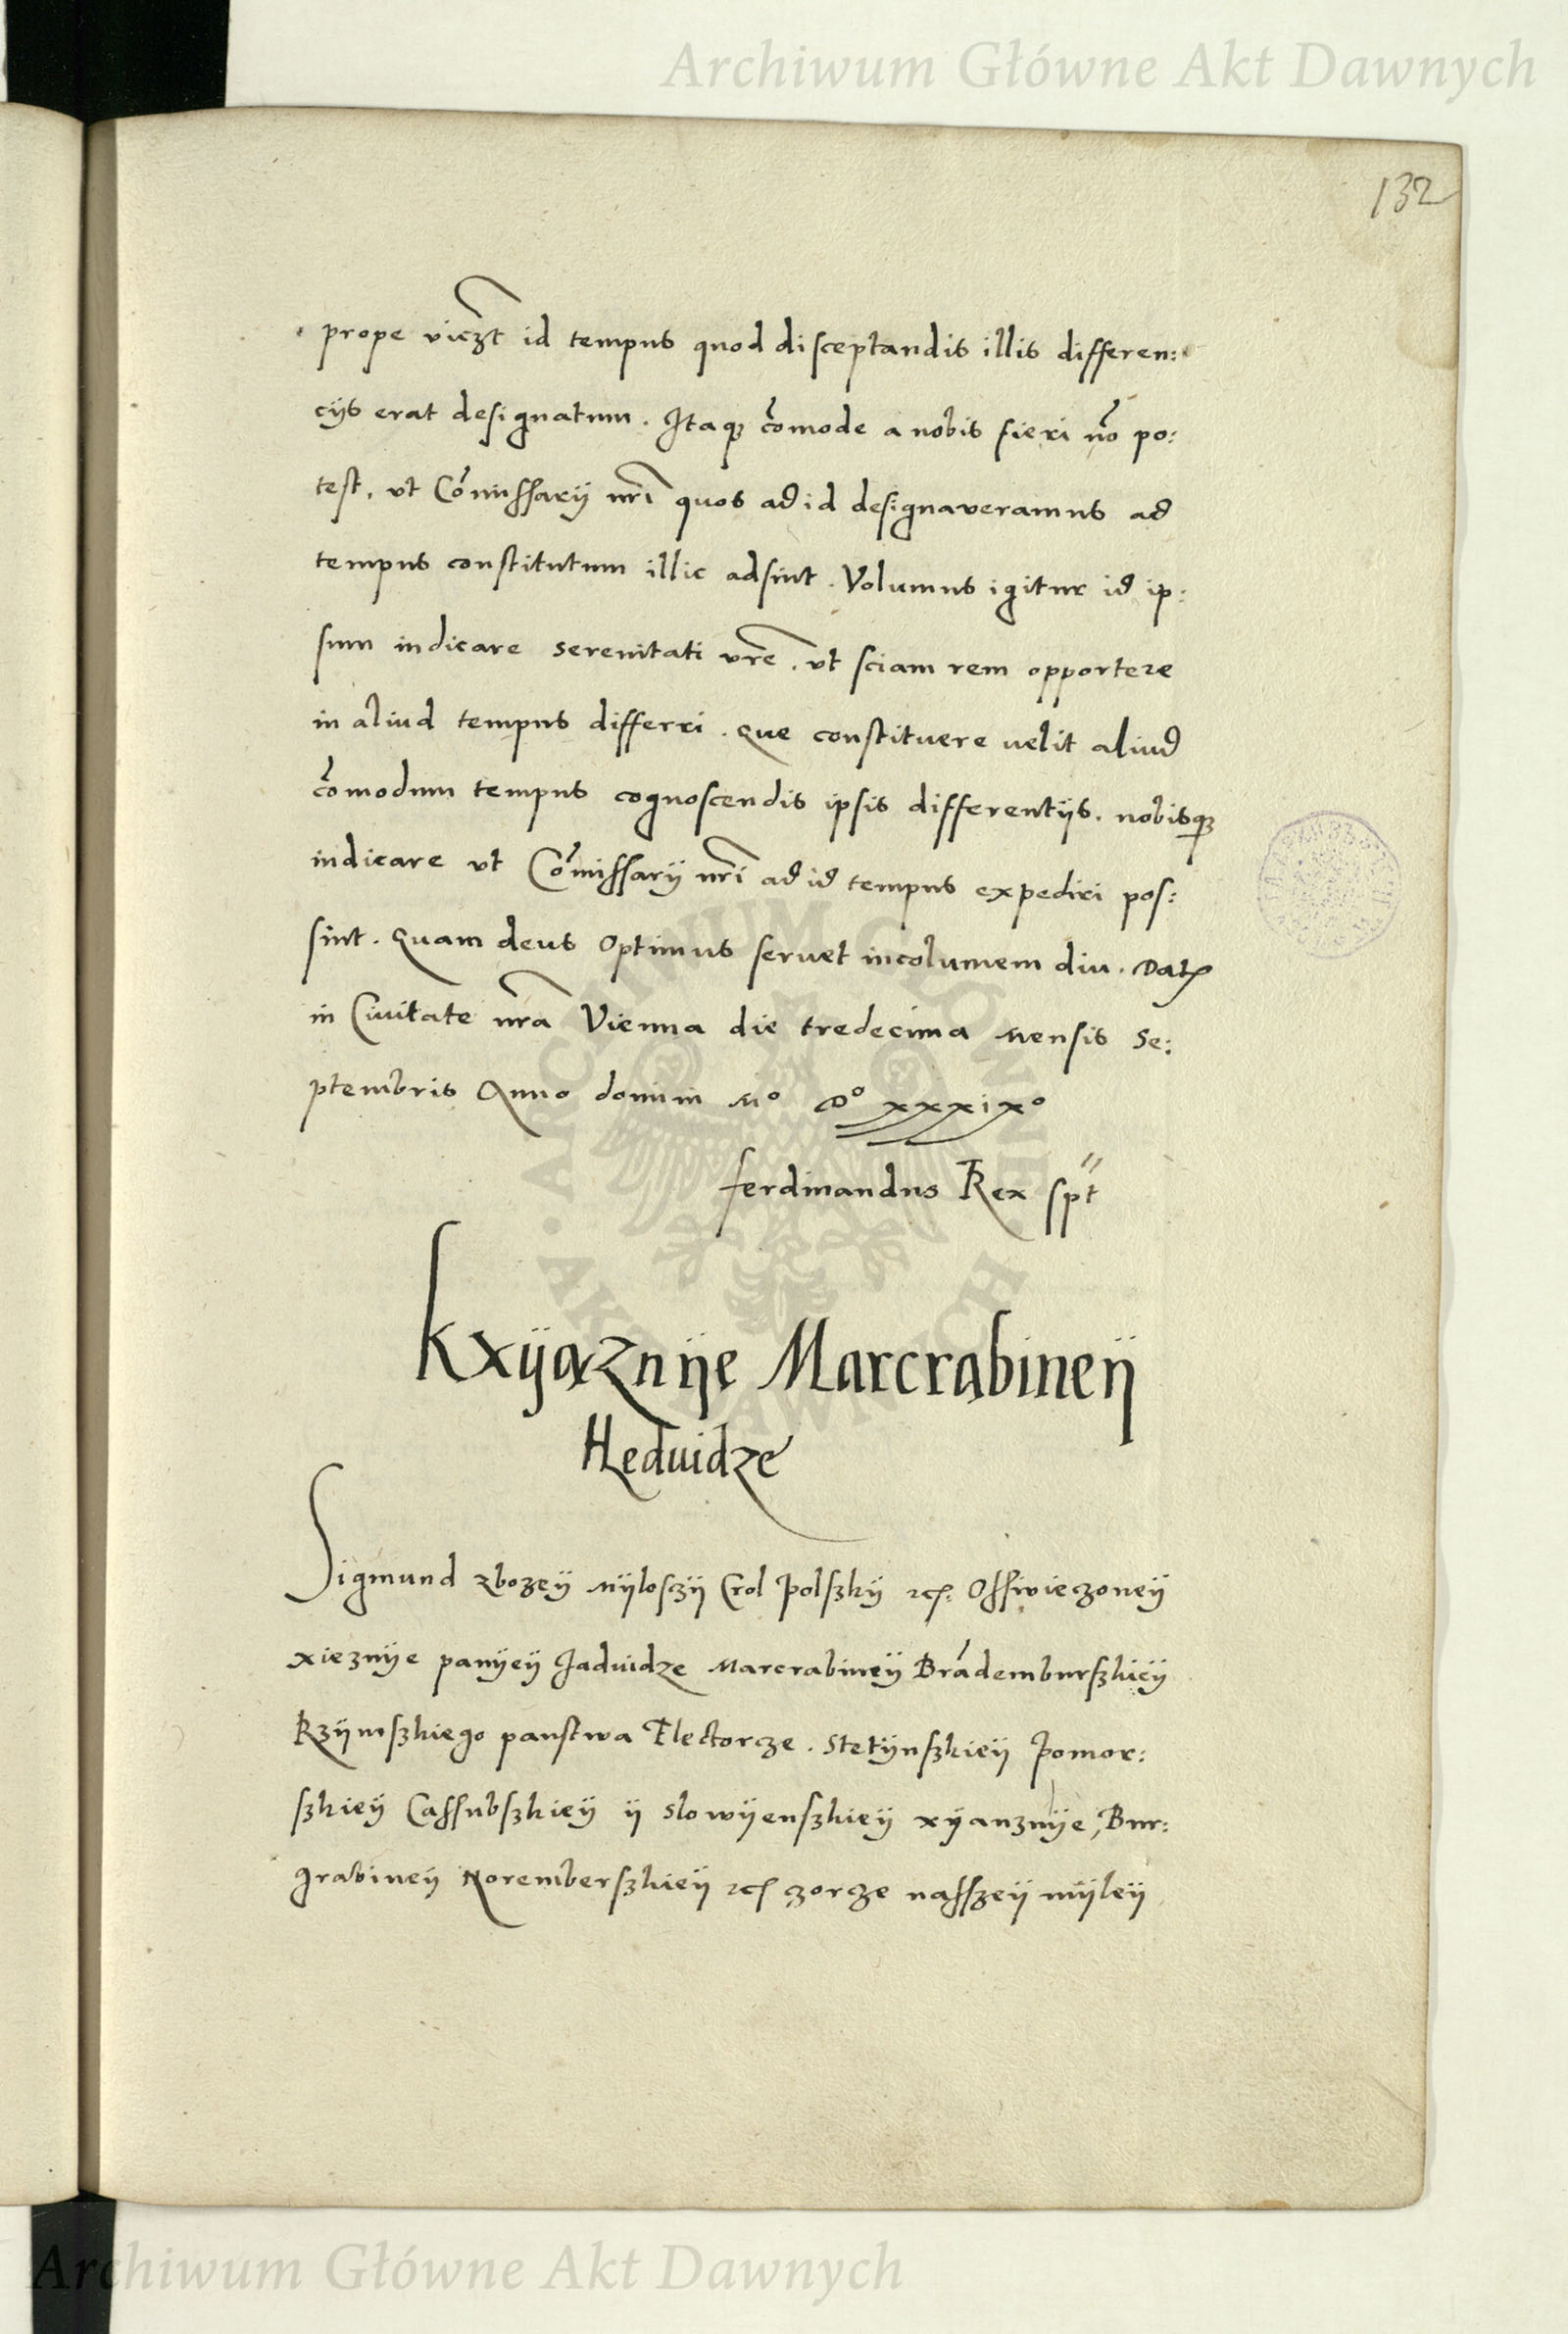 Archiwum Główne Akt Dawnych
132
prope viczt id tempus quod disceptandis illis differen:
cÿs erat designatum. Itaqȝ cōmode a nobis fieri nō po:
test, ut Cōmissarÿ nr̄i quos ad id designaveramus ad
tempus constitutum illic adsint. Volumus igitur id ip:
sum indicare serenitati vr̄e. ut sciam rem opportere
in aliud tempus differri. Que constituere velit aliud
cōmodum tempus cognoscendis ipsis differentÿs. nobisqȝ
indicare ut Cōmissarÿ nr̄i ad id tempus expediri pos:
sint. Quam deus Optimus servet incolumem diu. Dat
in Civitate nr̄a Vienna die tredecima Mensis Se:
ptembris Anno domini Mo Do xxxixo
ferdinandus Rex spt
Kxÿąznÿe Marcrabineÿ
Heduidze
Sigmund zbozeÿ Mÿlosczÿ Crol Polskÿ etc: Osswieczoneÿ
xieznÿe panÿeÿ Jaduidze Marcrabineÿ Brādemburszkieÿ
Rzÿmszkiego panstwa Electorze. Stetÿnszkieÿ Pomor:
szkieÿ Cassubszkieÿ ÿ Slowÿenszkieÿ xÿanznÿe, Bur:
grabineÿ Noremberszkieÿ etc czorze nasszeÿ mÿleÿ
ARCHIWUM GŁÓWNE AKT DAWNYCH
Archiwum Główne Akt Dawnych